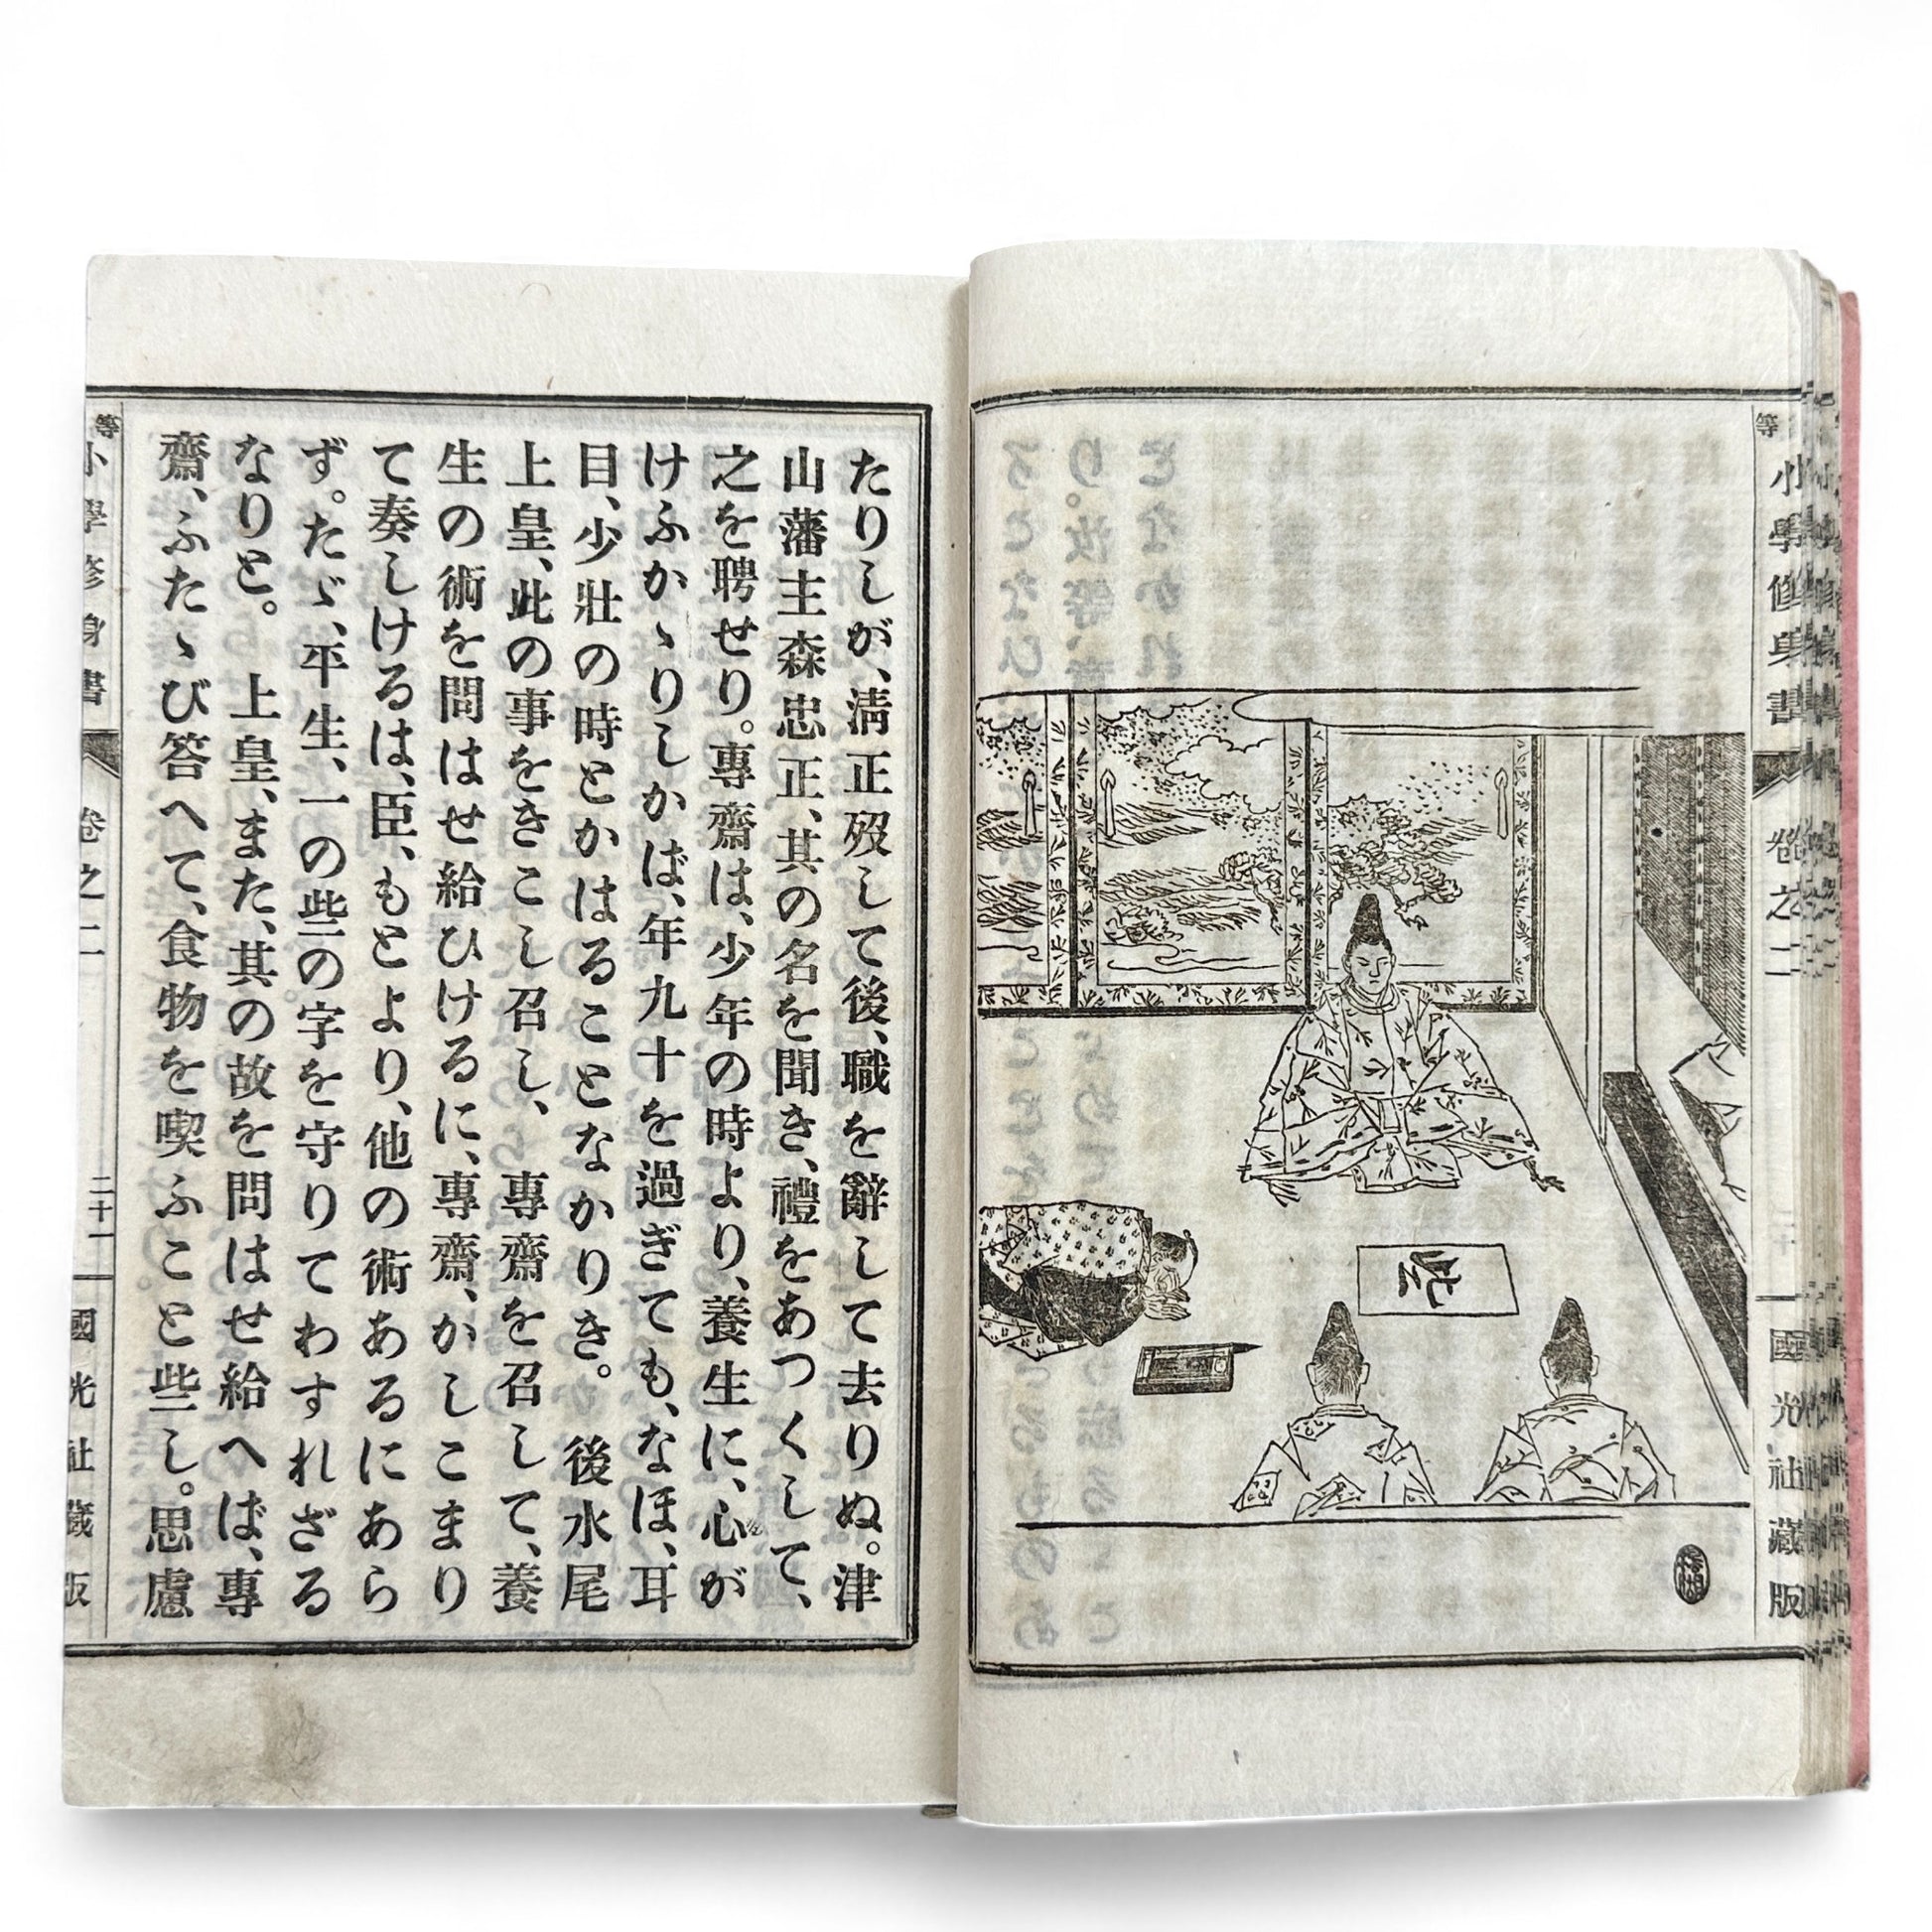 等
小學修身書
卷之二
國光社藏版
些
たりしが、淸正歿して後、職を辭して去りぬ。津
山藩主森忠正、其の名を聞き、禮をあつくして、
之を聘せり。專齋は、少年の時より、養生に、心が
けふかゝりしかば、年九十を過ぎても、なほ、耳
目、少壯の時とかはることなかりき。 後水尾
上皇、此の事をきこし召し、 專齋を召して、養
生の術を問はせ給ひけるに、專齋、かしこまり
て奏しけるは、臣、もとより、他の術あるにあら
ず。たゞ、平生、一の些の字を守りてわすれざる
なりと。 上皇、また、其の故を問はせ給へば、專
齋、ふたゝび答へて、食物を喫ふこと些し。思慮
等
小學修身書
卷之二
二十一
國光社藏版